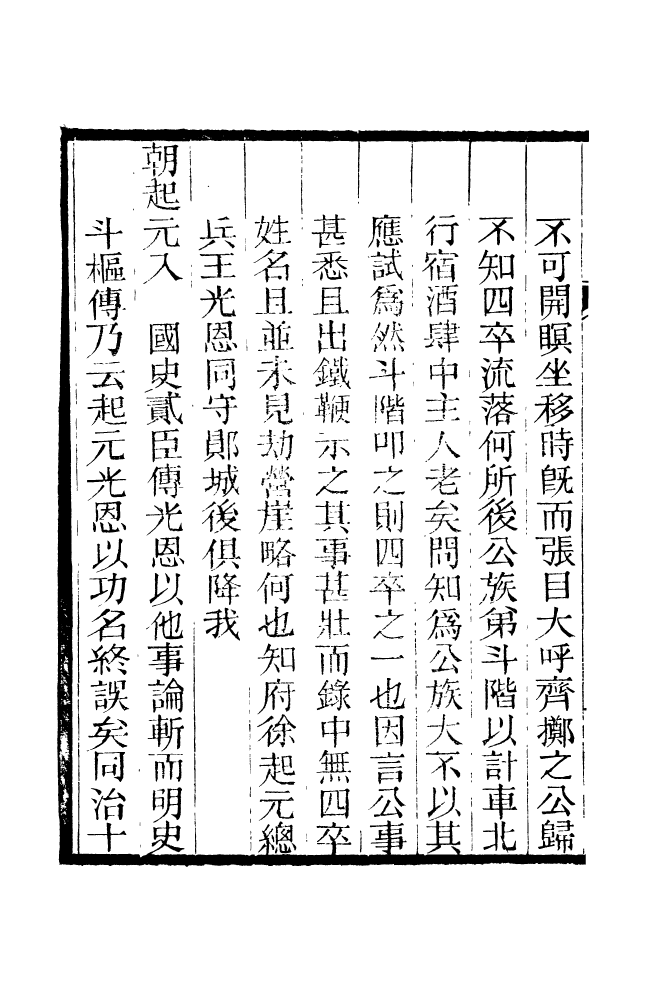 不可開瞑坐移時旣而張目大呼齊擲之公歸
不知四卒流落何所後公族弟斗階以計車北
行宿酒肆中主人老矣問知爲公族大不以其
應試爲然斗階叩之則四卒之一也因言公事
甚悉且出鐵鞭示之其事甚壯而錄中無四卒
姓名且並未見劫營崖略何也知府徐起元總
兵王光恩同守鄖城後俱降我
朝起元入　國史貳臣傳光恩以他事論斬而明史
斗樞傳乃云起元光恩以功名終誤矣同治十